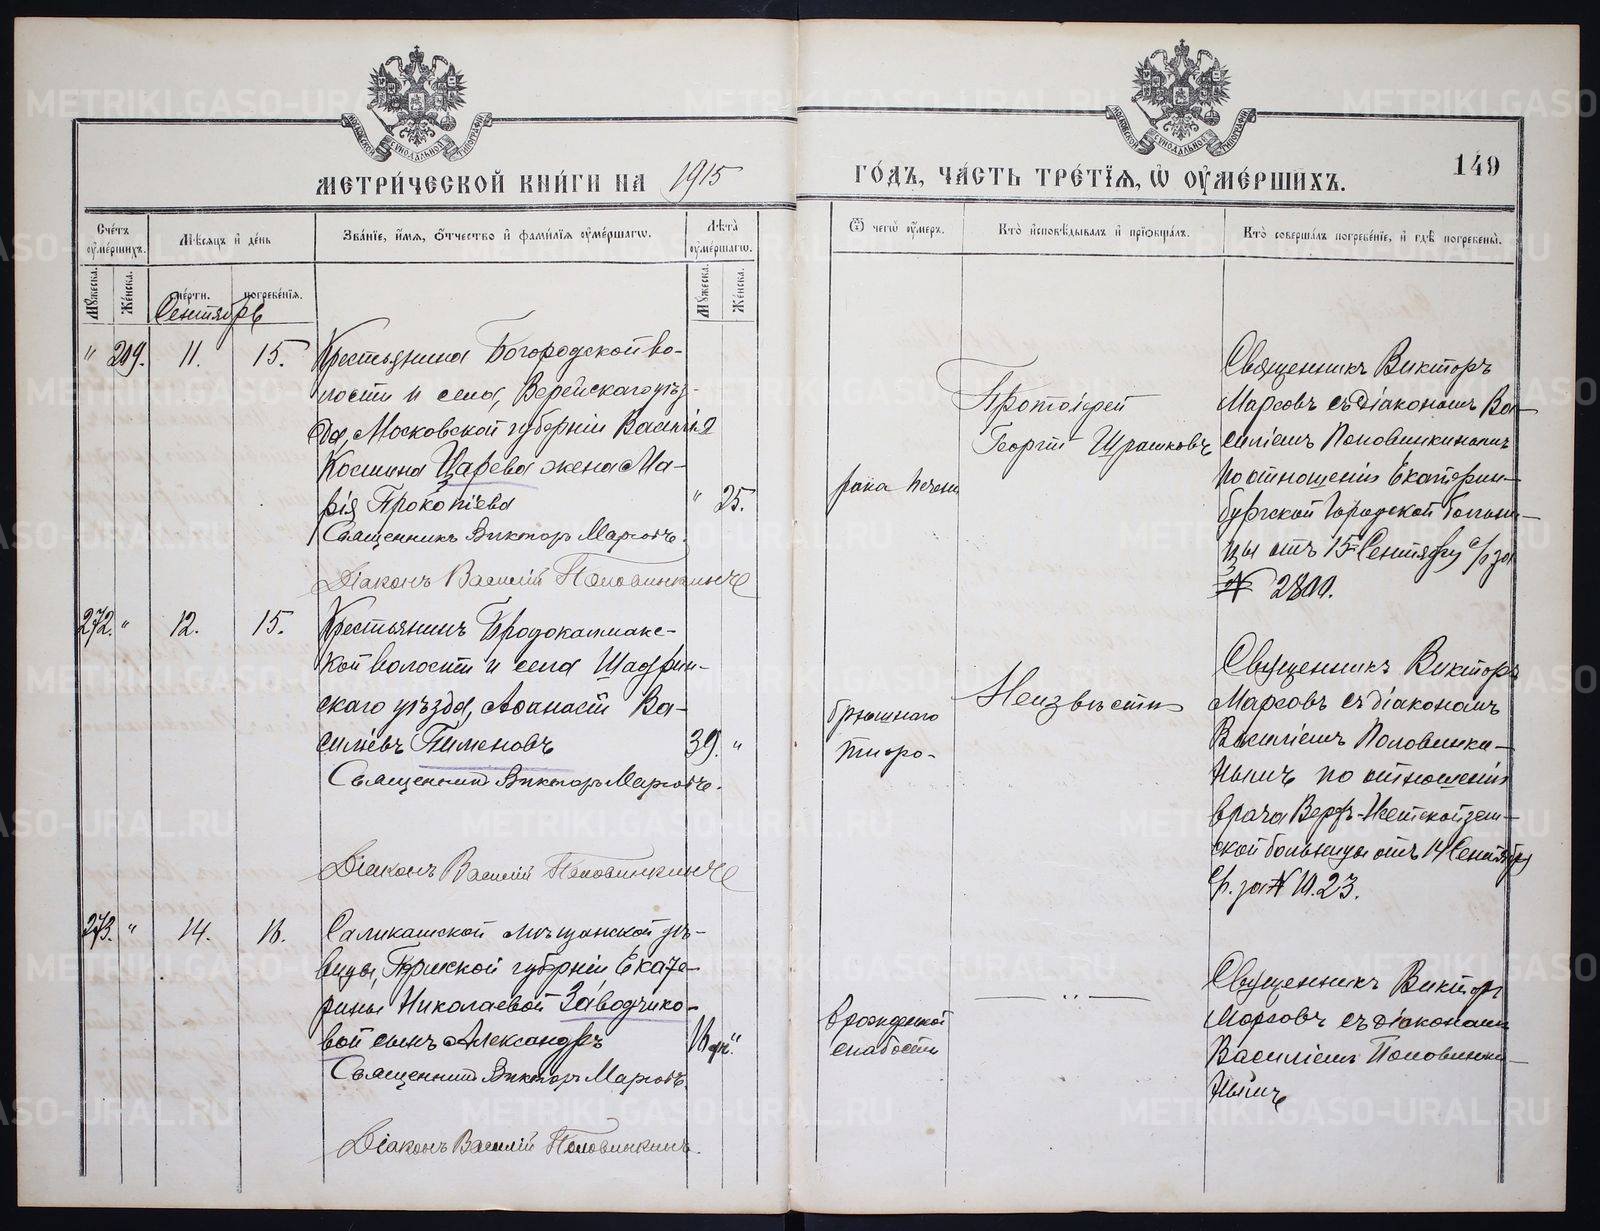 МЕТРИ́ЧЕСКОЙ КНИ́ГИ НА 1915
ГО́ДЪ, ЧА́СТЬ ТРЕ́ТЇѦ, Ѡ҆ ОУ҆МЕ́РШИХЪ.
149
Сче́тъ оу҆ме́ршихъ.
Мѣ́сяцъ и҆ де́нь
Зва́нїе, и҆́мѧ, ѻ҆́тчество и҆ фами́лїѧ оу҆ме́ршагѡ.
Лѣ́та оу҆ме́ршагѡ.
Ѿ чегѡ̀ оу҆́меръ.
Кто̀ и҆сповѣ́дывалъ и҆ прїѡбща́лъ.
Кто̀ соверша́лъ погребе́нїе, и҆ гдѣ̀ погребены̀.
Мꙋ́жеска.
Же́нска.
сме́рти.
погребе́нїѧ.
Мꙋ́жеска.
Же́нска.
Сентябрь
" 209. 11. 15.
Крестьянина Богородской во-
лости и села, Верейскаго уѣз-
да, Московской губерніи Василія
Косьмина Царева жена Ма-
рія Прокопіева
" 25.
Священникъ Викторъ Марсовъ.
Діаконъ Василій Половинкинъ
рака печени
Протоіерей
Георгій
Священникъ Викторъ
Марсовъ съ діакономъ Ва-
силіемъ Половинкинымъ
по отношенію Екатерин-
бургской Городской больни-
цы отъ 15 Сентября с/г за
№ 2800.
272. " 12. 15.
Крестьянинъ
кой волости и села Шадрин-
скаго уѣзда, Аѳанасій Ва-
сильевъ Пименовъ
39. "
Священникъ Викторъ Марсовъ.
Діаконъ Василій Половинкинъ
брюшного
тифо-
Неизвѣстно
Священникъ Викторъ
Марсовъ съ діакономъ
Василіемъ Половинки-
нымъ по отношенію
врача Верх-Исетской зем-
ской больницы отъ 14 Сентября
с/г. за № 1023.
273. " 14. 16.
мѣщанской дѣ-
вицы, Пермской губерніи Екате-
рины Николаевой Заводчико-
вой сынъ Александръ
16 дн. "
Священникъ Викторъ Марсовъ.
Діаконъ Василій Половинкинъ.
врожденной
слабости
— " —
Священникъ Викторъ
Марсовъ съ діакономъ
Василіемъ Половинки-
нымъ
METRIKI.GASO-URAL.RU